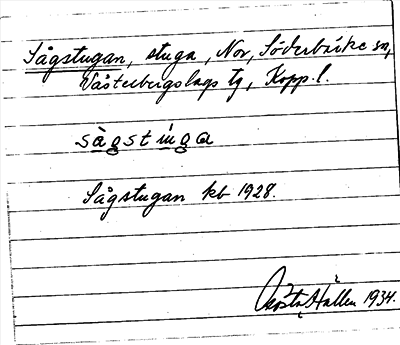 Sågstugan, stuga, Nor, Söderbärke sn,
Västerbergslags tg, Kopp. l.
sågstuga
Sågstugan kb 1928.
Gösta Hallen 1934.